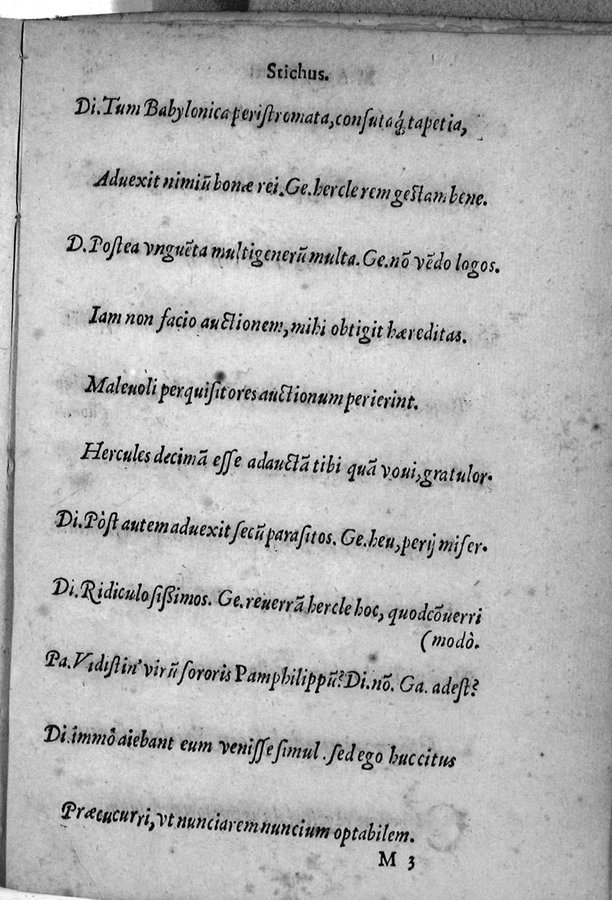 Stichus.
Di. Tum Babylonica peristromata, consutaq́; tapetia,
Aduexit nimiū bonæ rei. Ge. hercle rem gestam bene.
D. Postea vnguēta multigenerū multa. Ge. nō vēdo logos.
Iam non facio auctionem, mihi obtigit hæreditas.
Maleuoli perquisitores auctionum perierint.
Hercules decimā esse adauctā tibi quā voui, gratulor.
Di. Pòst autem aduexit secū parasitos. Ge. heu, perij miser.
Di. Ridiculosissimos. Ge. reuerrā hercle hoc, quod cōuerri
(modò.
Pa. Vidistin' virū sororis Pamphilippū? Di. nō. Ga. adest?
Di. immò aiebant eum venisse simul. sed ego huc citus
Præcucurri, vt nunciarem nuncium optabilem.
M 3